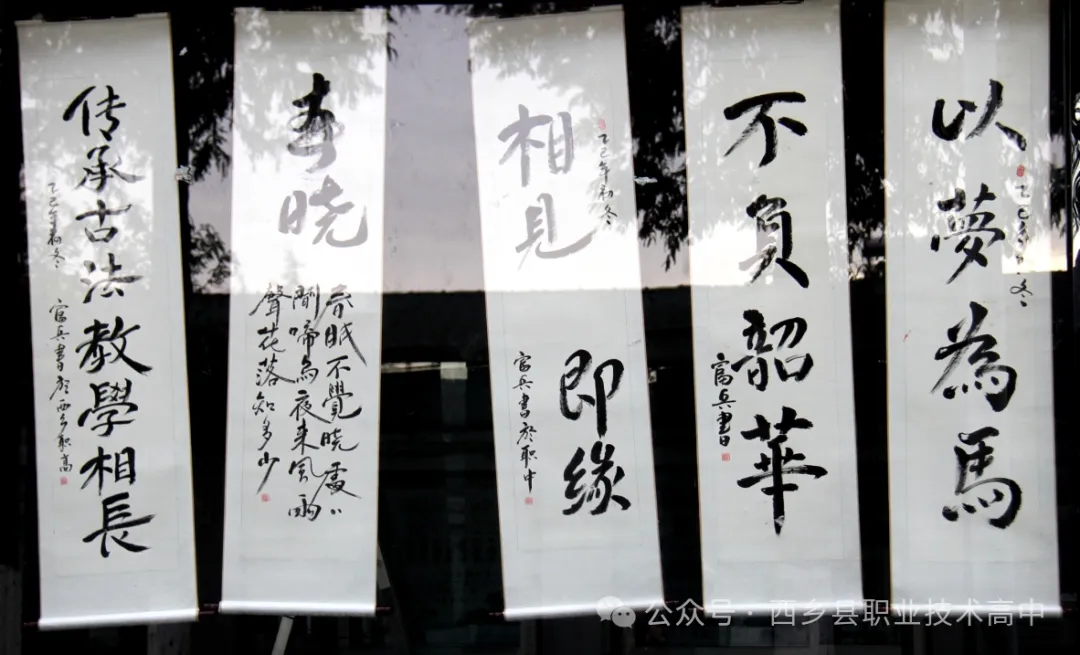 以夢為馬
不負韶華
富兵書
乙巳年初冬
相見
即緣
富兵書於職中
春晓
春眠不覺晓處〻
聞啼鳥夜来風雨
聲花落知多少
传承古法教學相長
乙巳年初冬
富兵書於西乡職高
公众号·西乡县职业技术高中